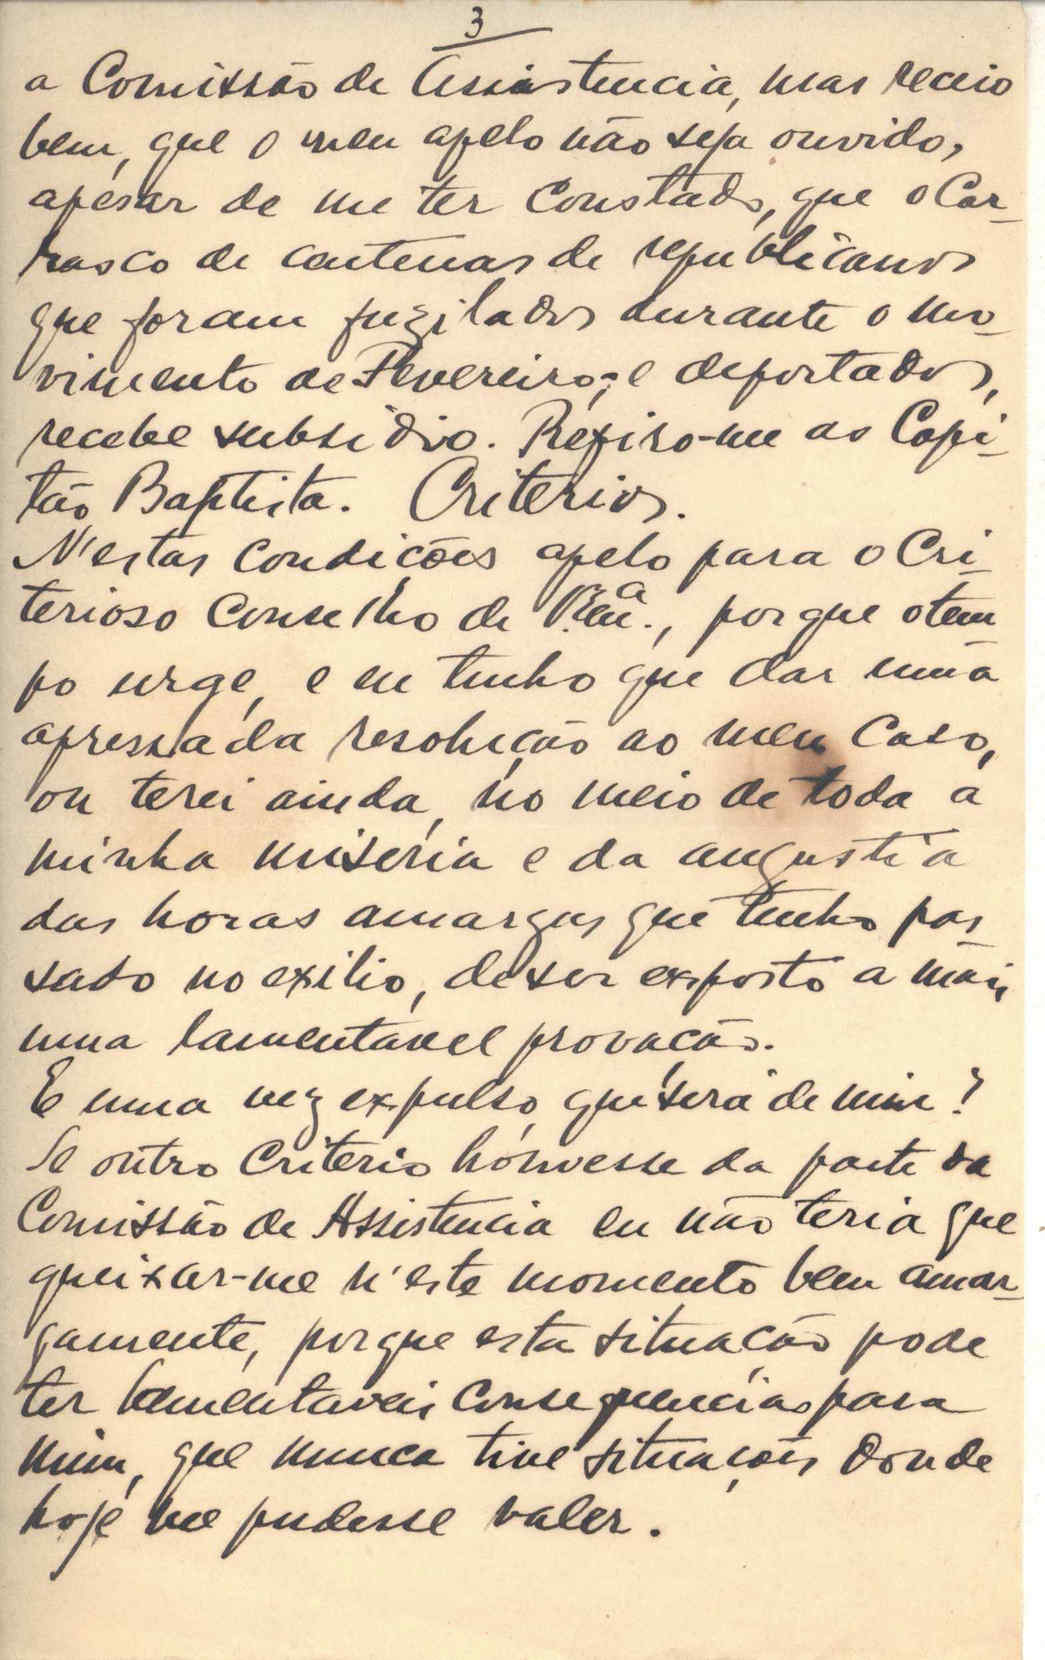 3
a Comissão de Assistencia, mas receio
bem, que o meu apelo não seja ouvido,
apesar de me ter constado, que o Car-
rasco de centenas de republicanos
que foram fuzilados durante o mo-
vimento de Fevereiro, e deportados,
recebe subsidio. Refiro-me ao Capi-
tão Baptista. Criterios.
N'estas condições apelo para o Cri-
terioso Conselho de V. Ex.ª, porque o tem
po urge, e eu tenho que dar uma
apressada resolução ao meu caso,
ou terei ainda, no meio de toda a
minha miseria e da angustia
das horas amargas que tenho pas
sado no exilio, de ser exposto a mais
uma lamentavel provação.
E uma vez expulso, que será de mim?
Se outro criterio houvesse da parte da
Comissão de Assistencia eu não teria que
queixar-me n'este momento bem amar-
gamente, porque esta situação pode
ter lamentaveis consequencias para
mim, que nunca tive situações donde
hoje me pudesse valer.